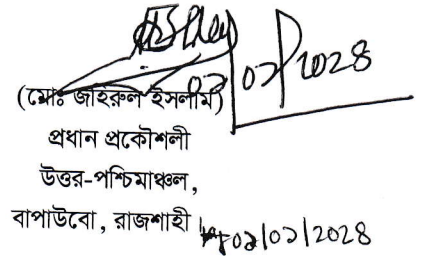 ০১/০১/২০২৪
(মোঃ জহিরুল ইসলাম)
প্রধান প্রকৌশলী
উত্তর-পশ্চিমাঞ্চল,
বাপাউবো, রাজশাহী।
০১/০১/২০২৪